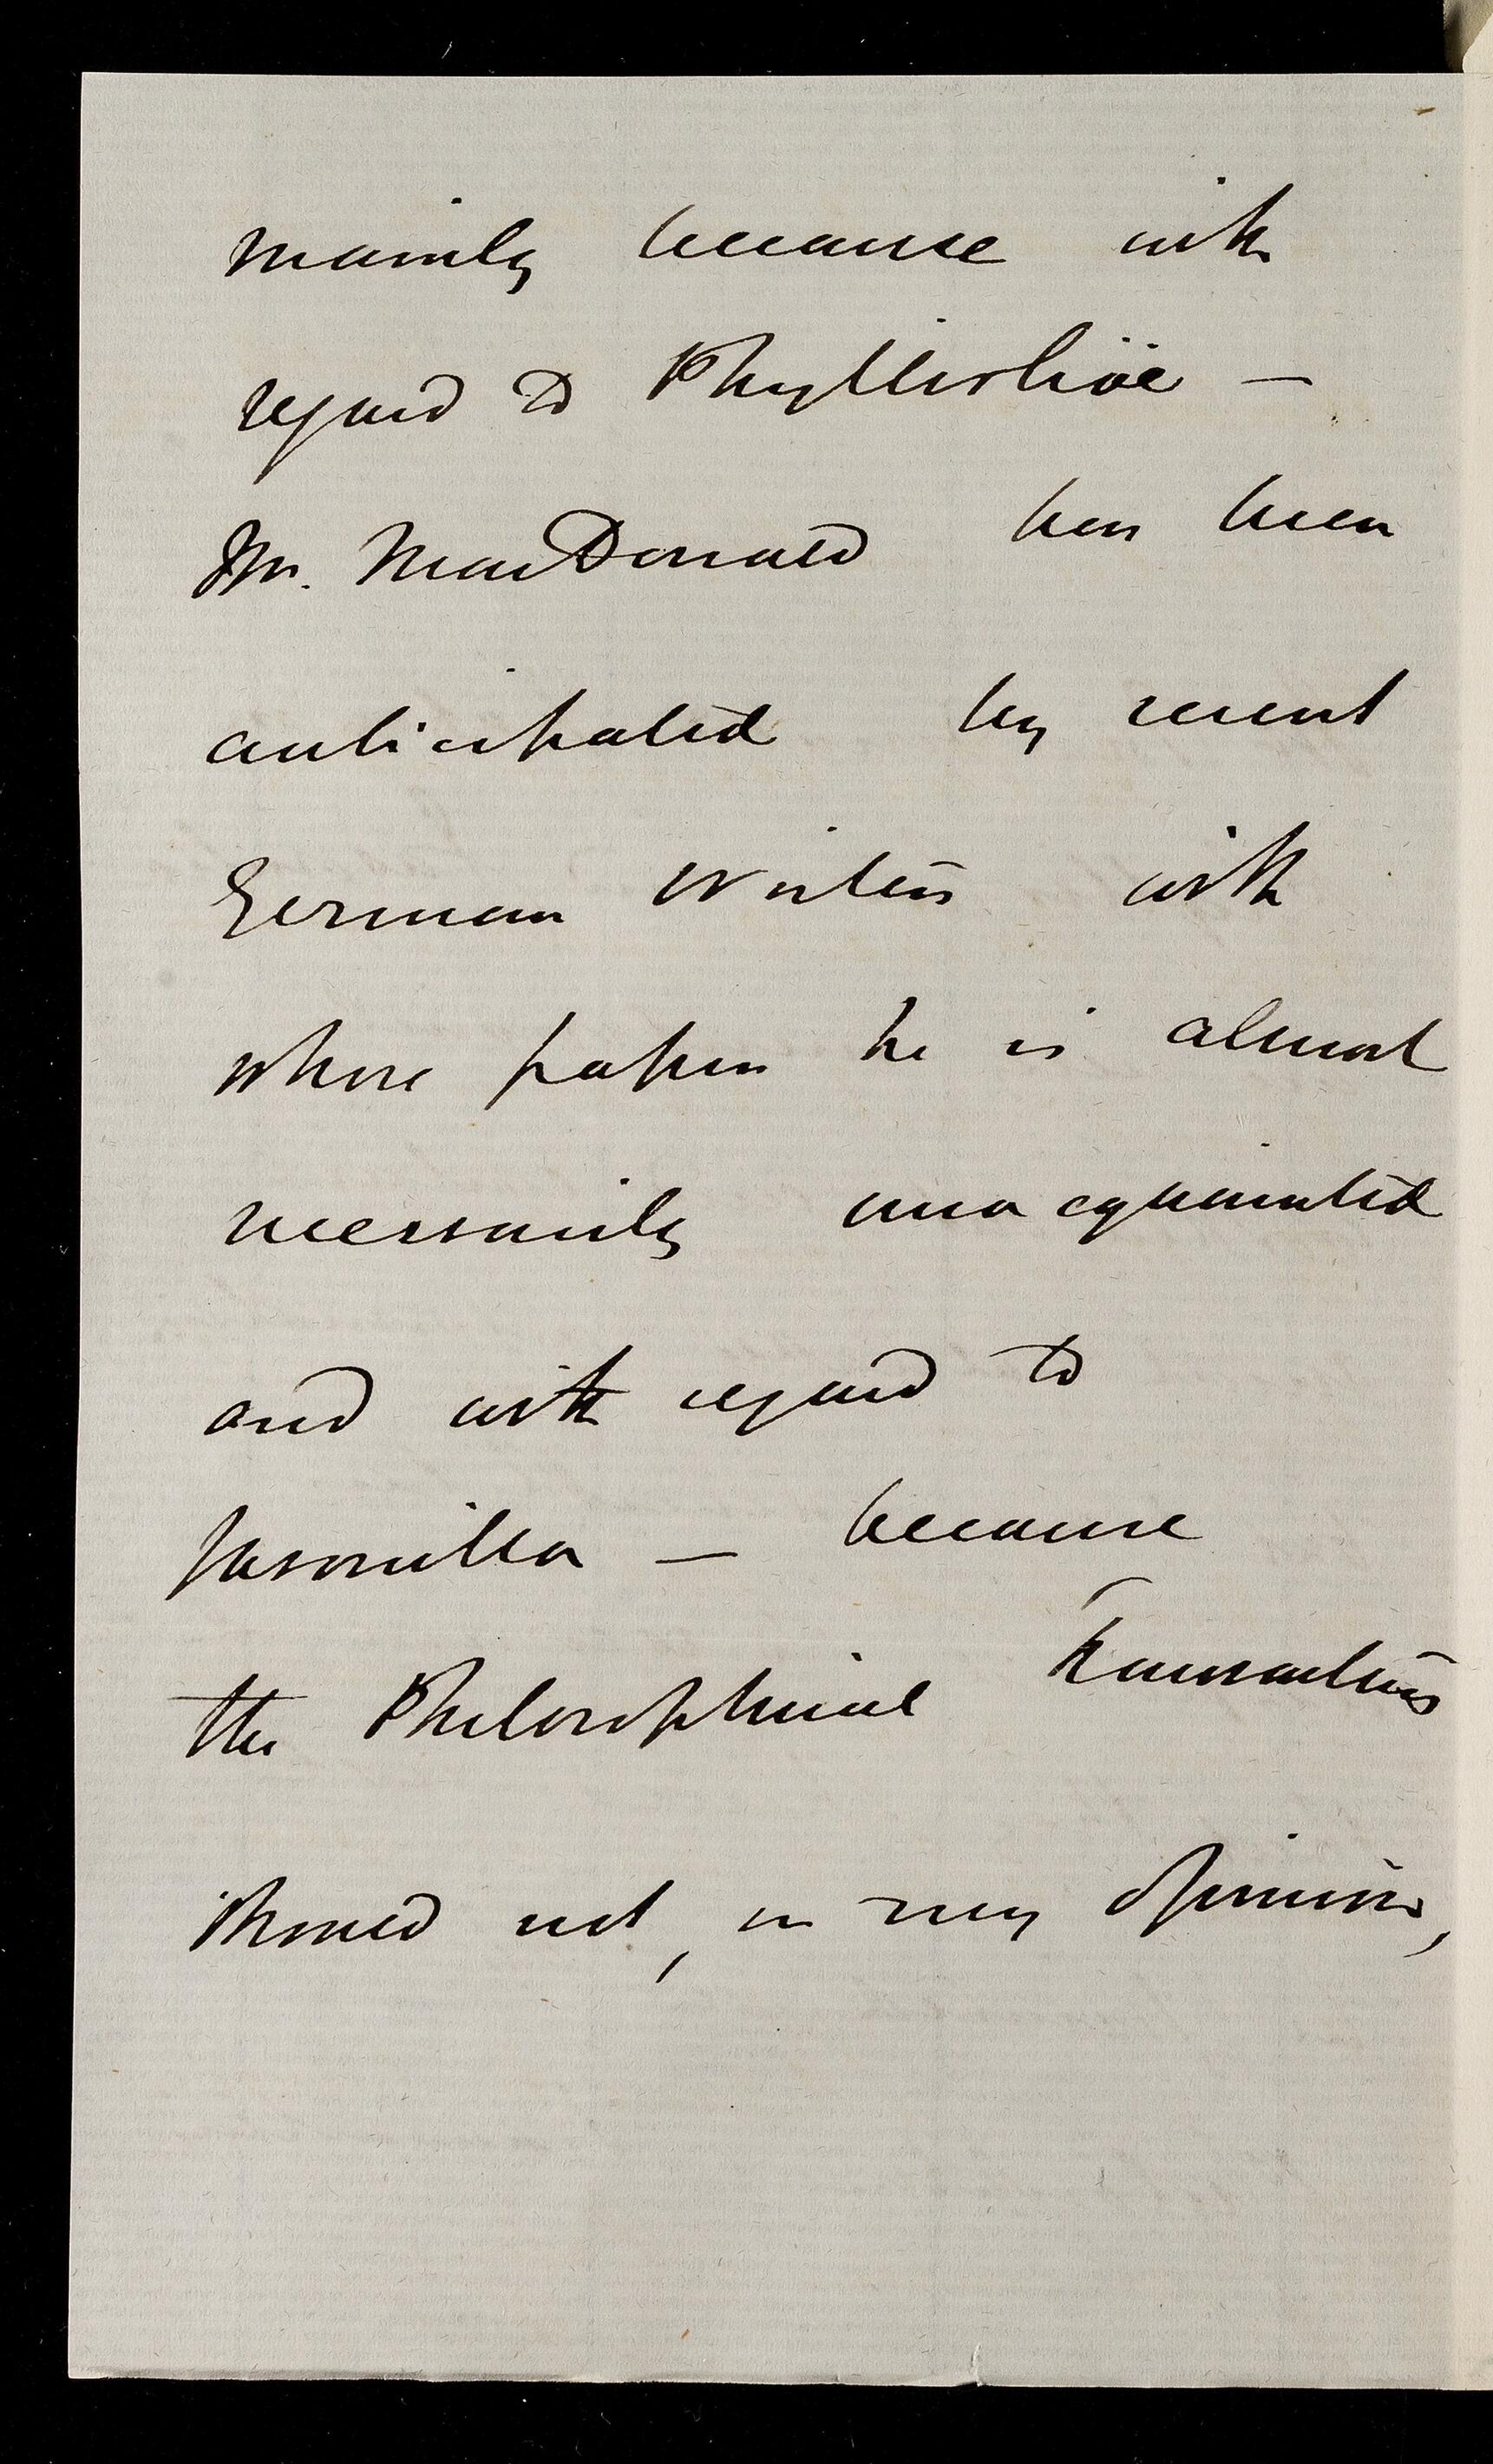 mainly because with
regard to Phyllirhöe —
Mr. MacDonald has been
anticipated by recent
German writers with
whose papers he is almost
necessarily unacquainted
and with regard to
Jasonilla — because
the Philosophical Transactions
should not, in my opinion,